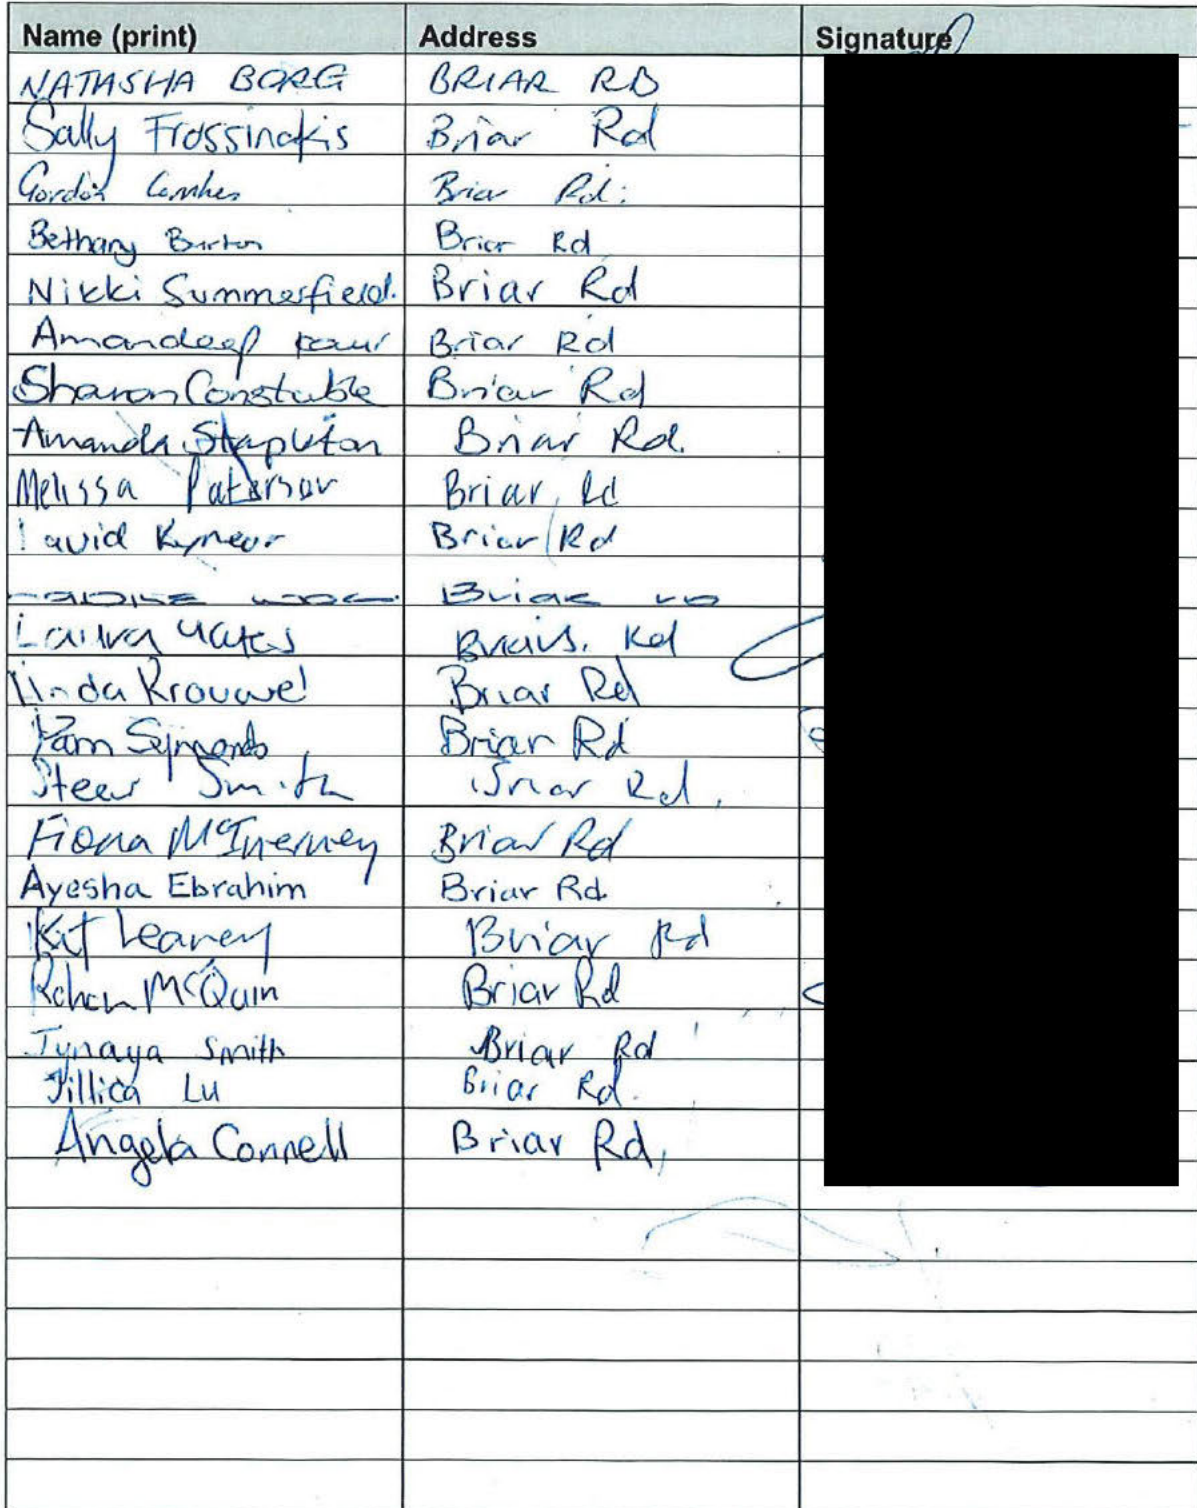 Name (print) Address Signature
NATASHA BORG BRIAR RD
Sally Frossinakis Briar Rd
Gordon Combes Briar Rd.
Bethany Burton Briar Rd
Nikki Summerfield. Briar Rd
Amandeep kaur Briar Rd
Sharon Constable Briar Rd
Amanda Stapleton Briar Rd.
Melissa Paterson Briar Rd
David Briar Rd
Briar RD
Laura Yates Rd
Linda Krouwel Briar Rd
Pam Symonds Briar Rd
Smith Briar Rd,
Fiona McInerney Briar Rd
Ayesha Ebrahim Briar Rd.
Kit Leaney Briar Rd
Rohan McQuin Briar Rd
Tynaya Smith Briar Rd
Jillica Lu Briar Rd.
Angela Connell Briar Rd,